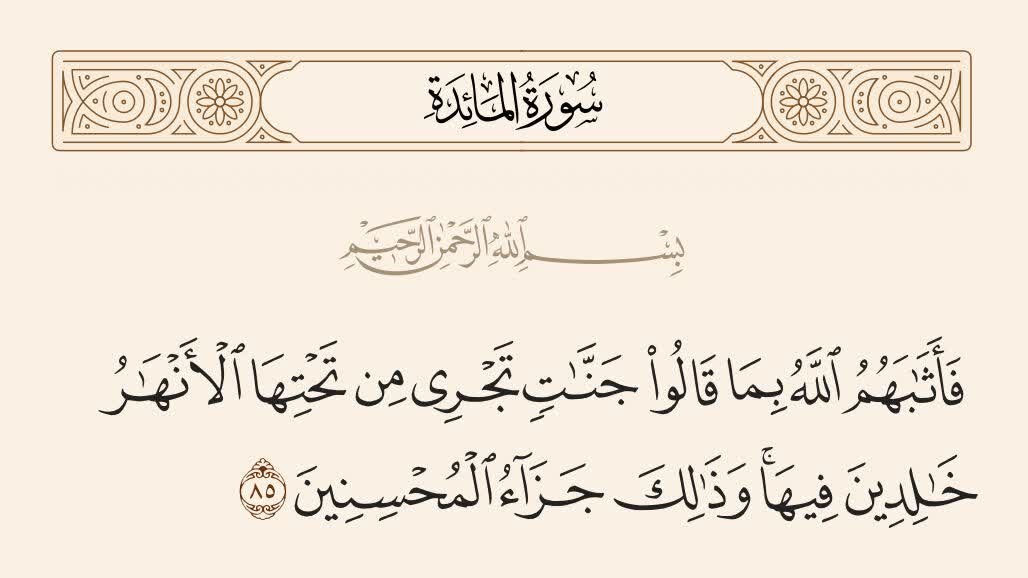 سُورَةُ المَائِدَةِ
بِسْمِ ٱللَّهِ ٱلرَّحْمَٰنِ ٱلرَّحِيمِ
فَأَثَٰبَهُمُ ٱللَّهُ بِمَا قَالُوا۟ جَنَّٰتٍ تَجْرِى مِن تَحْتِهَا ٱلْأَنْهَٰرُ
خَٰلِدِينَ فِيهَا ۚ وَذَٰلِكَ جَزَآءُ ٱلْمُحْسِنِينَ ٨٥